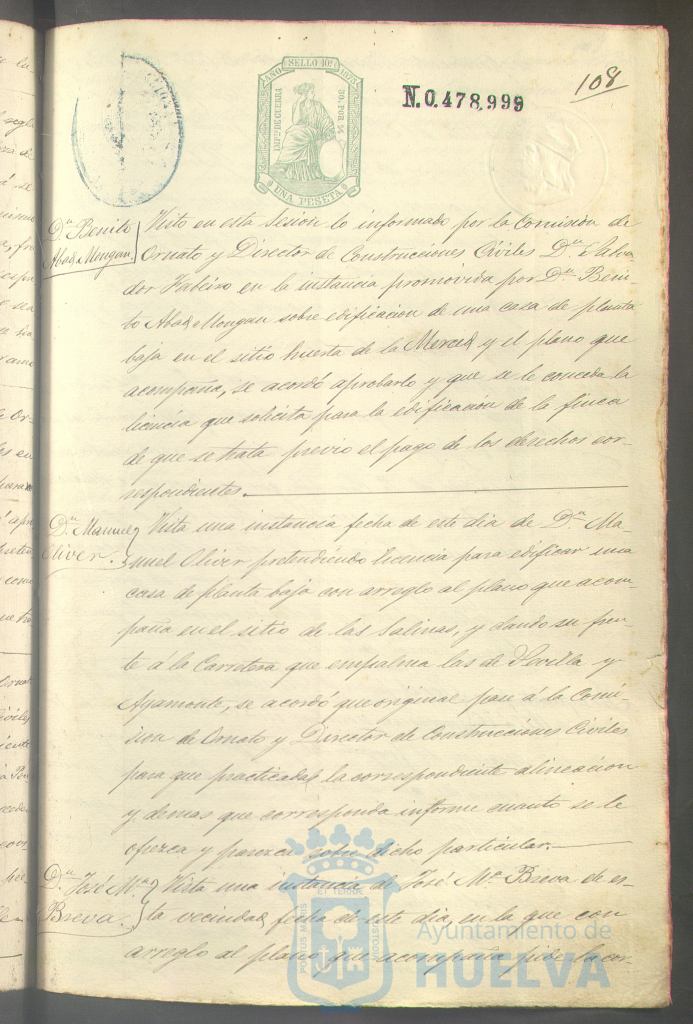 108
N.0.478,999
AÑO SELLO 10º 1875
IMPTO DE GUERRA
50. POR %
UNA PESETA
Dn. Benito
Abad Mongan
Visto en esta Sesion lo informado por la Comision de
Ornato y Director de Construcciones Civiles Dn. Salva
dor en la instancia promovida por Dn. Beni
to Abad Mongan sobre edificacion de una casa de planta
baja en el sitio huerta de la Merced y el plano que
acompaña, se acordó aprobarlo y que se le conceda la
licencia que solicita para la edificacion de la finca
de que se trata previo el pago de los derechos cor-
respondientes.
Dn. Manuel
Oliver.
Vista una instancia fecha de este dia de Dn. Ma-
nuel Oliver pretendiendo licencia para edificar una
casa de planta baja con arreglo al plano que acom-
paña en el sitio de las Salinas, y dando su fren-
te á la Carretera que empalma las de Sevilla y
Ayamonte, se acordó que original pase á la Comi-
sion de Ornato y Director de Construcciones Civiles
para que practicada la correspondiente alineacion
y demas que corresponda informe cuanto se le
ofrezca y parezca sobre dicho particular.
Dn. José Mª
Breva.
Vista una instancia de José Mª Breva de es-
ta vecindad fecha de este dia, en la que con
arreglo al plano que acompaña pide la cor-
PORTUS MARIS ET TERRAE CUSTODIA
Ayuntamiento de
HUELVA